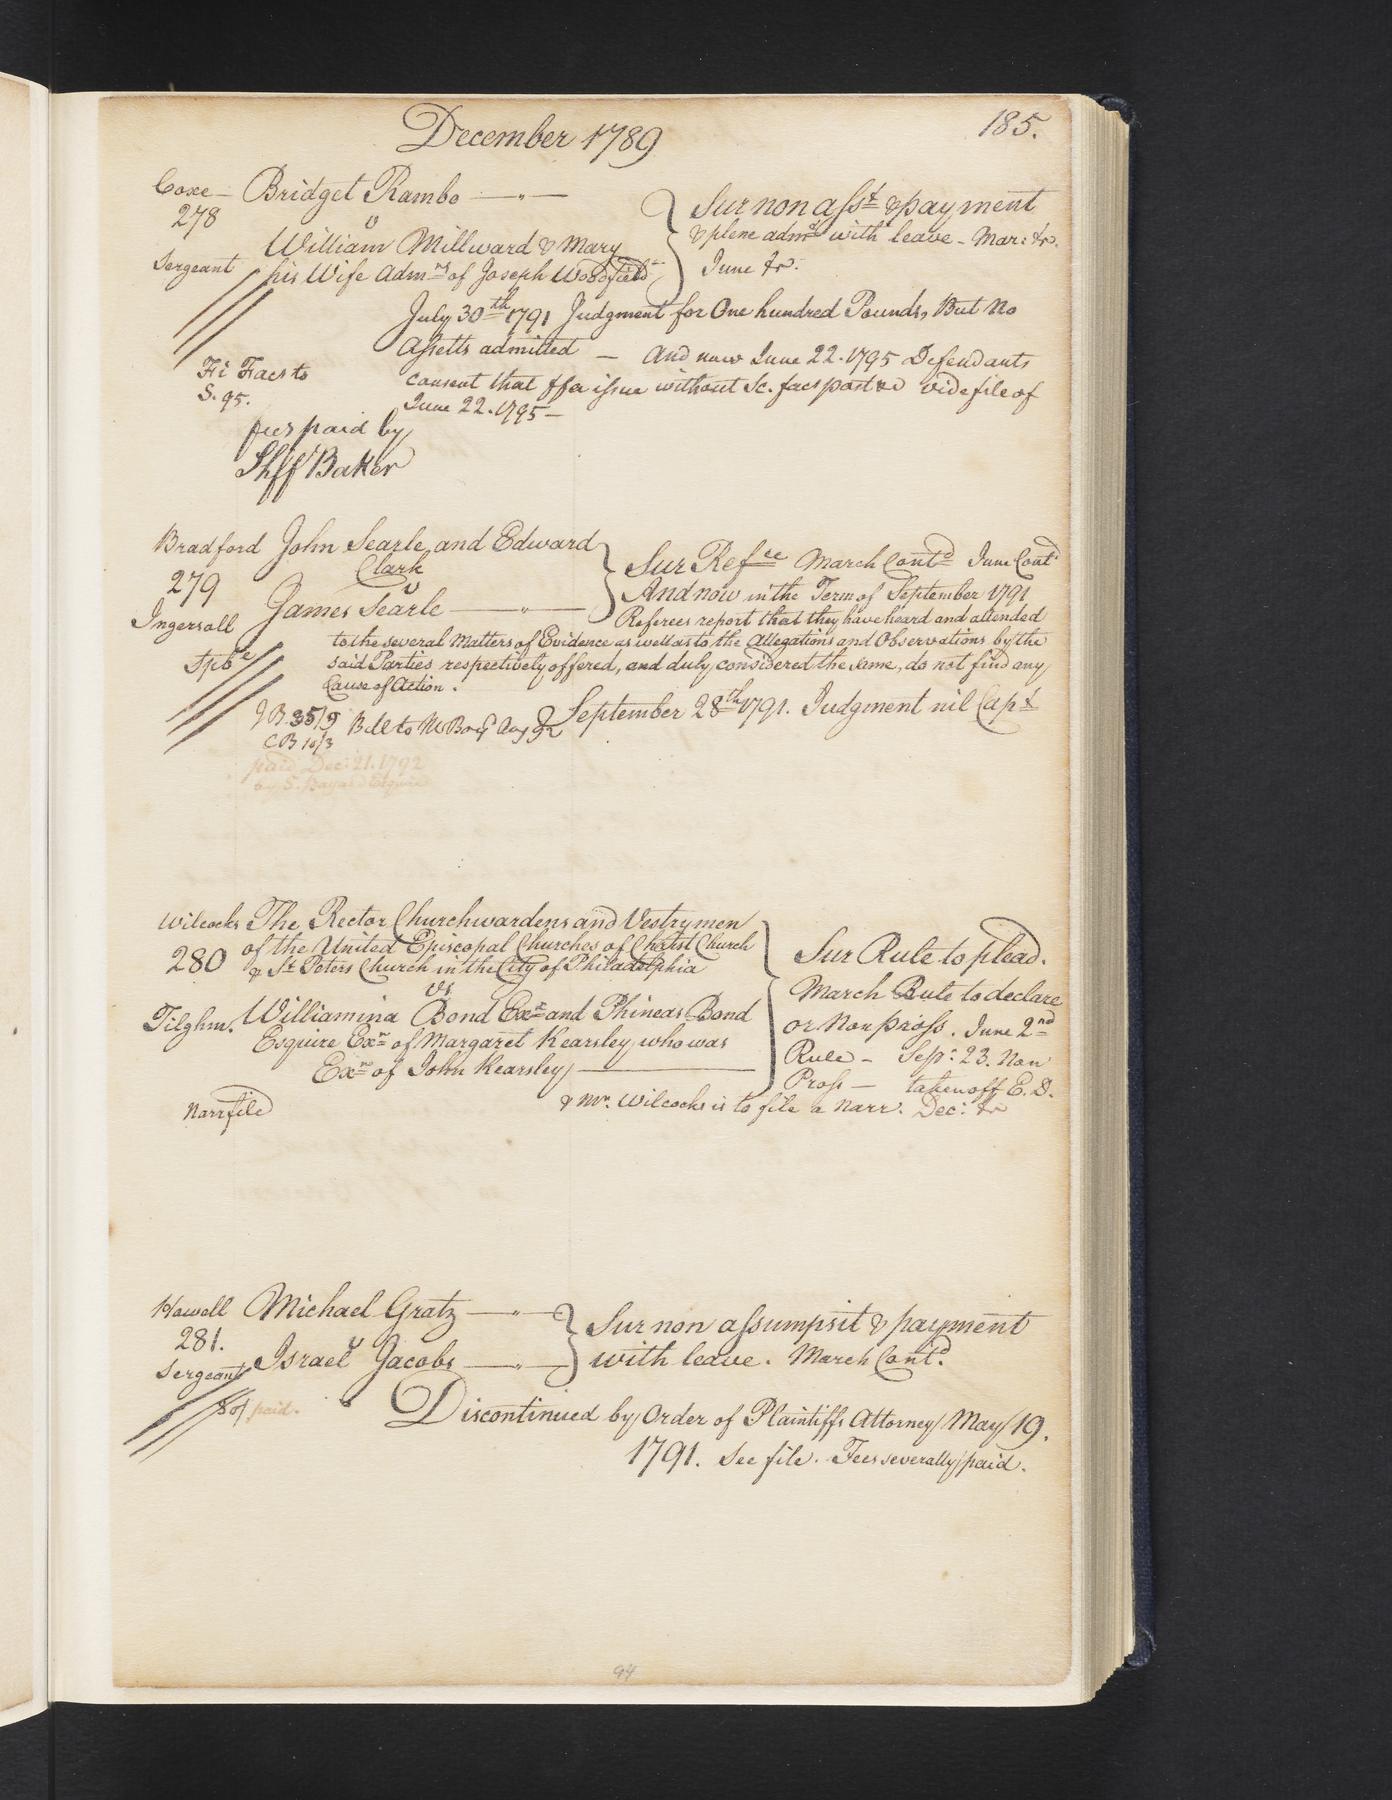 December 1789
185.
Coxe — Bridget Rambo
278
v
William Millward & Mary
Sergeant his Wife Admrs of Joseph Woodfield
Sur non asst & payment
& plene admt with leave - Mar: &c.
June &c.
July 30th 1791 Judgment for One hundred Pounds, But No
Assetts admitted — And now June 22. 1795 Defendants
consent that ffa issue without Sc. facs post &d vide file of
June 22. 1795 —
Fi Facs to
S. 95.
fees paid by
Shff Baker
Bradford John Searle and Edward
Clark
279
v
Ingersoll James Searle
Sur Refce March Contd June Contd
And now in the Term of September 1791
Referees report that they have heard and attended
to the several Matters of Evidence as well as to the Allegations and Observations by the
said Parties respectively offered, and duly considered the same, do not find any
Cause of Action.
September 28th 1791. Judgment nil Capt
J B. 35/9
C B 10/3
Bill to
paid Dec: 21. 1792
by S. Bayard Esquire
Wilcocks The Rector Churchwardens and Vestrymen
of the United Episcopal Churches of Christ Church
280 & St Peters Church in the City of Philadelphia
vs
Tilghm. Williamina Bond Exx and Phineas Bond
Esquire Exr of Margaret Kearsley, who was
Exx of John Kearsley
Sur Rule to plead.
March Rule to declare
or Non pross. June 2nd
Rule - Sep: 23. Non
Pross — taken off E. B.
& Mr. Wilcocks is to file a Narr. Dec: &c
Narr file
Howell Michael Gratz
281.
v
Sergeant Israel Jacobs
Sur non assumpsit & payment
with leave. March Contd.
paid.
Discontinued by Order of Plaintiffs Attorney May 19.
1791. See file. Fees severally paid.
94